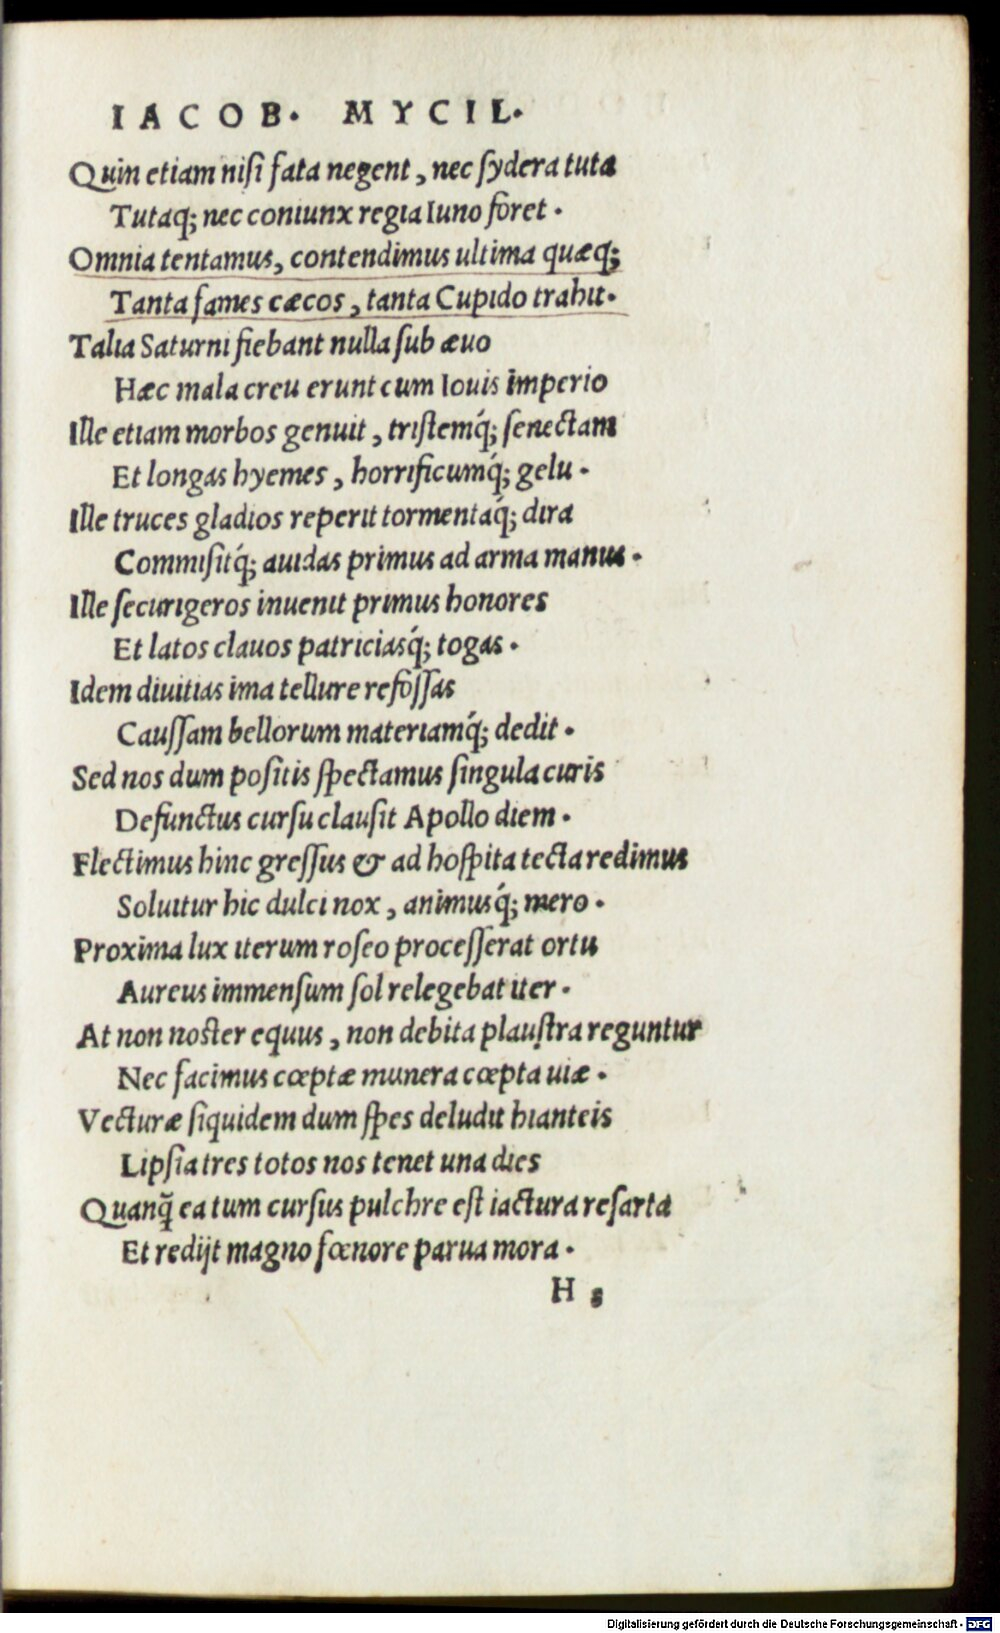 IACOB. MYCIL.
Quin etiam nisi fata negent, nec sydera tuta
Tutaq; nec coniunx regia Iuno foret.
Omnia tentamus, contendimus ultima quæq;
Tanta fames cæcos, tanta Cupido trahit.
Talia Saturni fiebant nulla sub æuo
Hæc mala creu erunt cum Iouis imperio
Ille etiam morbos genuit, tristemq́; senectam
Et longas hyemes, horrificumq́; gelu.
Ille truces gladios reperit tormentaq́; dira
Commisitq́; auidas primus ad arma manus.
Ille securigeros inuenit primus honores
Et latos clauos patriciasq́; togas.
Idem diuitias ima tellure refossas
Caussam bellorum materiamq́; dedit.
Sed nos dum positis spectamus singula curis
Defunctus cursu clausit Apollo diem.
Flectimus hinc gressus & ad hospita tecta redimus
Soluitur hic dulci nox, animusq́; mero.
Proxima lux iterum roseo processerat ortu
Aureus immensum sol relegebat iter.
At non noster equus, non debita plaustra reguntur
Nec facimus cœptæ munera cœpta uiæ.
Vecturæ siquidem dum spes deludit hianteis
Lipsia tres totos nos tenet una dies
Quanq̃ ea tum cursus pulchre est iactura resarta
Et redijt magno fœnore parua mora.
H s
Digitalisierung gefördert durch die Deutsche Forschungsgemeinschaft - DFG